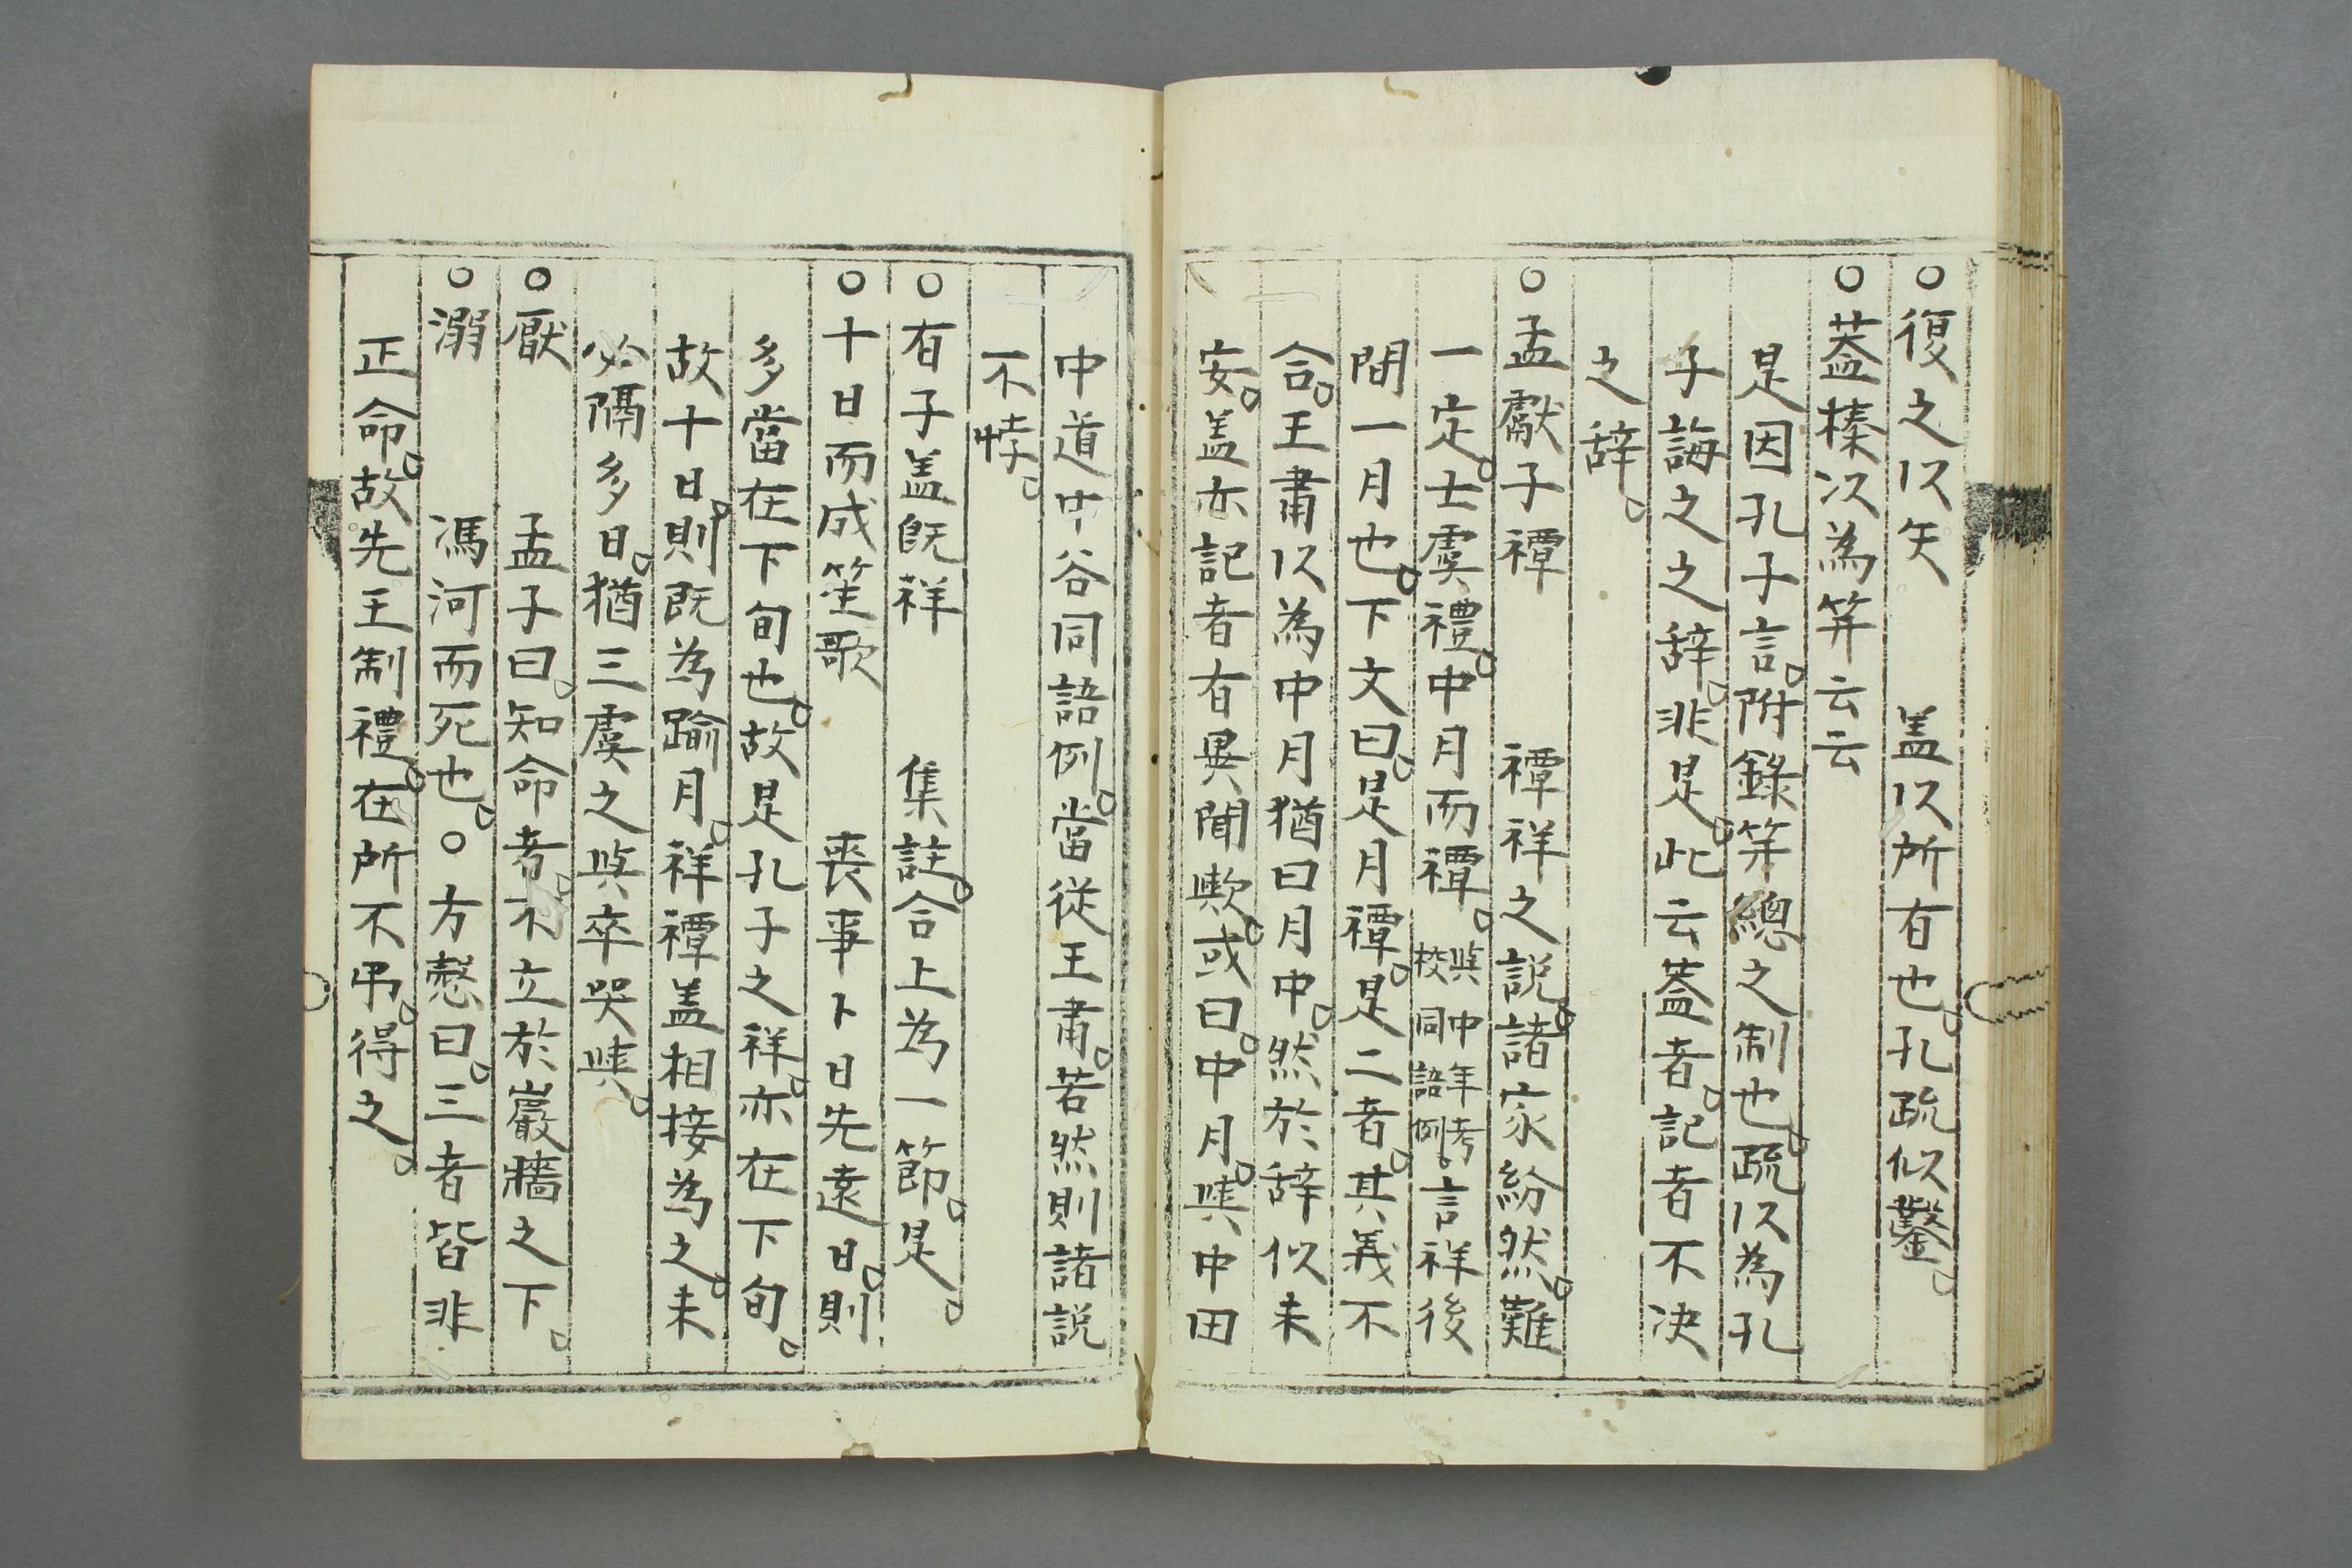 ○復之以矢　盖以所有也。孔疏似鑿。
○葢榛以為笄云云
是因孔子言。附錄笄總之制也。疏以為孔
子誨之之辞。非是。此云葢者。記者不决
之辞。
○孟獻子禫　禫祥之説。諸家紛然。難
一定。士虞禮。中月而禫。與中年考校同語例。言祥後
間一月也。下文曰。是月禫。是二者。其義不
合。王肅以為中月猶曰月中。然於辞似未
安。盖亦記者有異聞歟。或曰。中月。與中田
中道中谷同語例。當従王肅。若然則諸説
不悖。
○有子盖既祥　集註。合上為一節。是。
○十日而成笙歌　喪事卜日先遠日。則
多當在下旬也。故是孔子之祥。亦在下旬。
故十日。則既為踰月。祥禫盖相接為之。未
必隔多日。猶三虞之與卒哭與。
○厭　孟子曰。知命者。不立於巖牆之下。
○溺　馮河而死也。○方慤曰。三者皆非
正命。故先王制禮。在所不弔。得之。